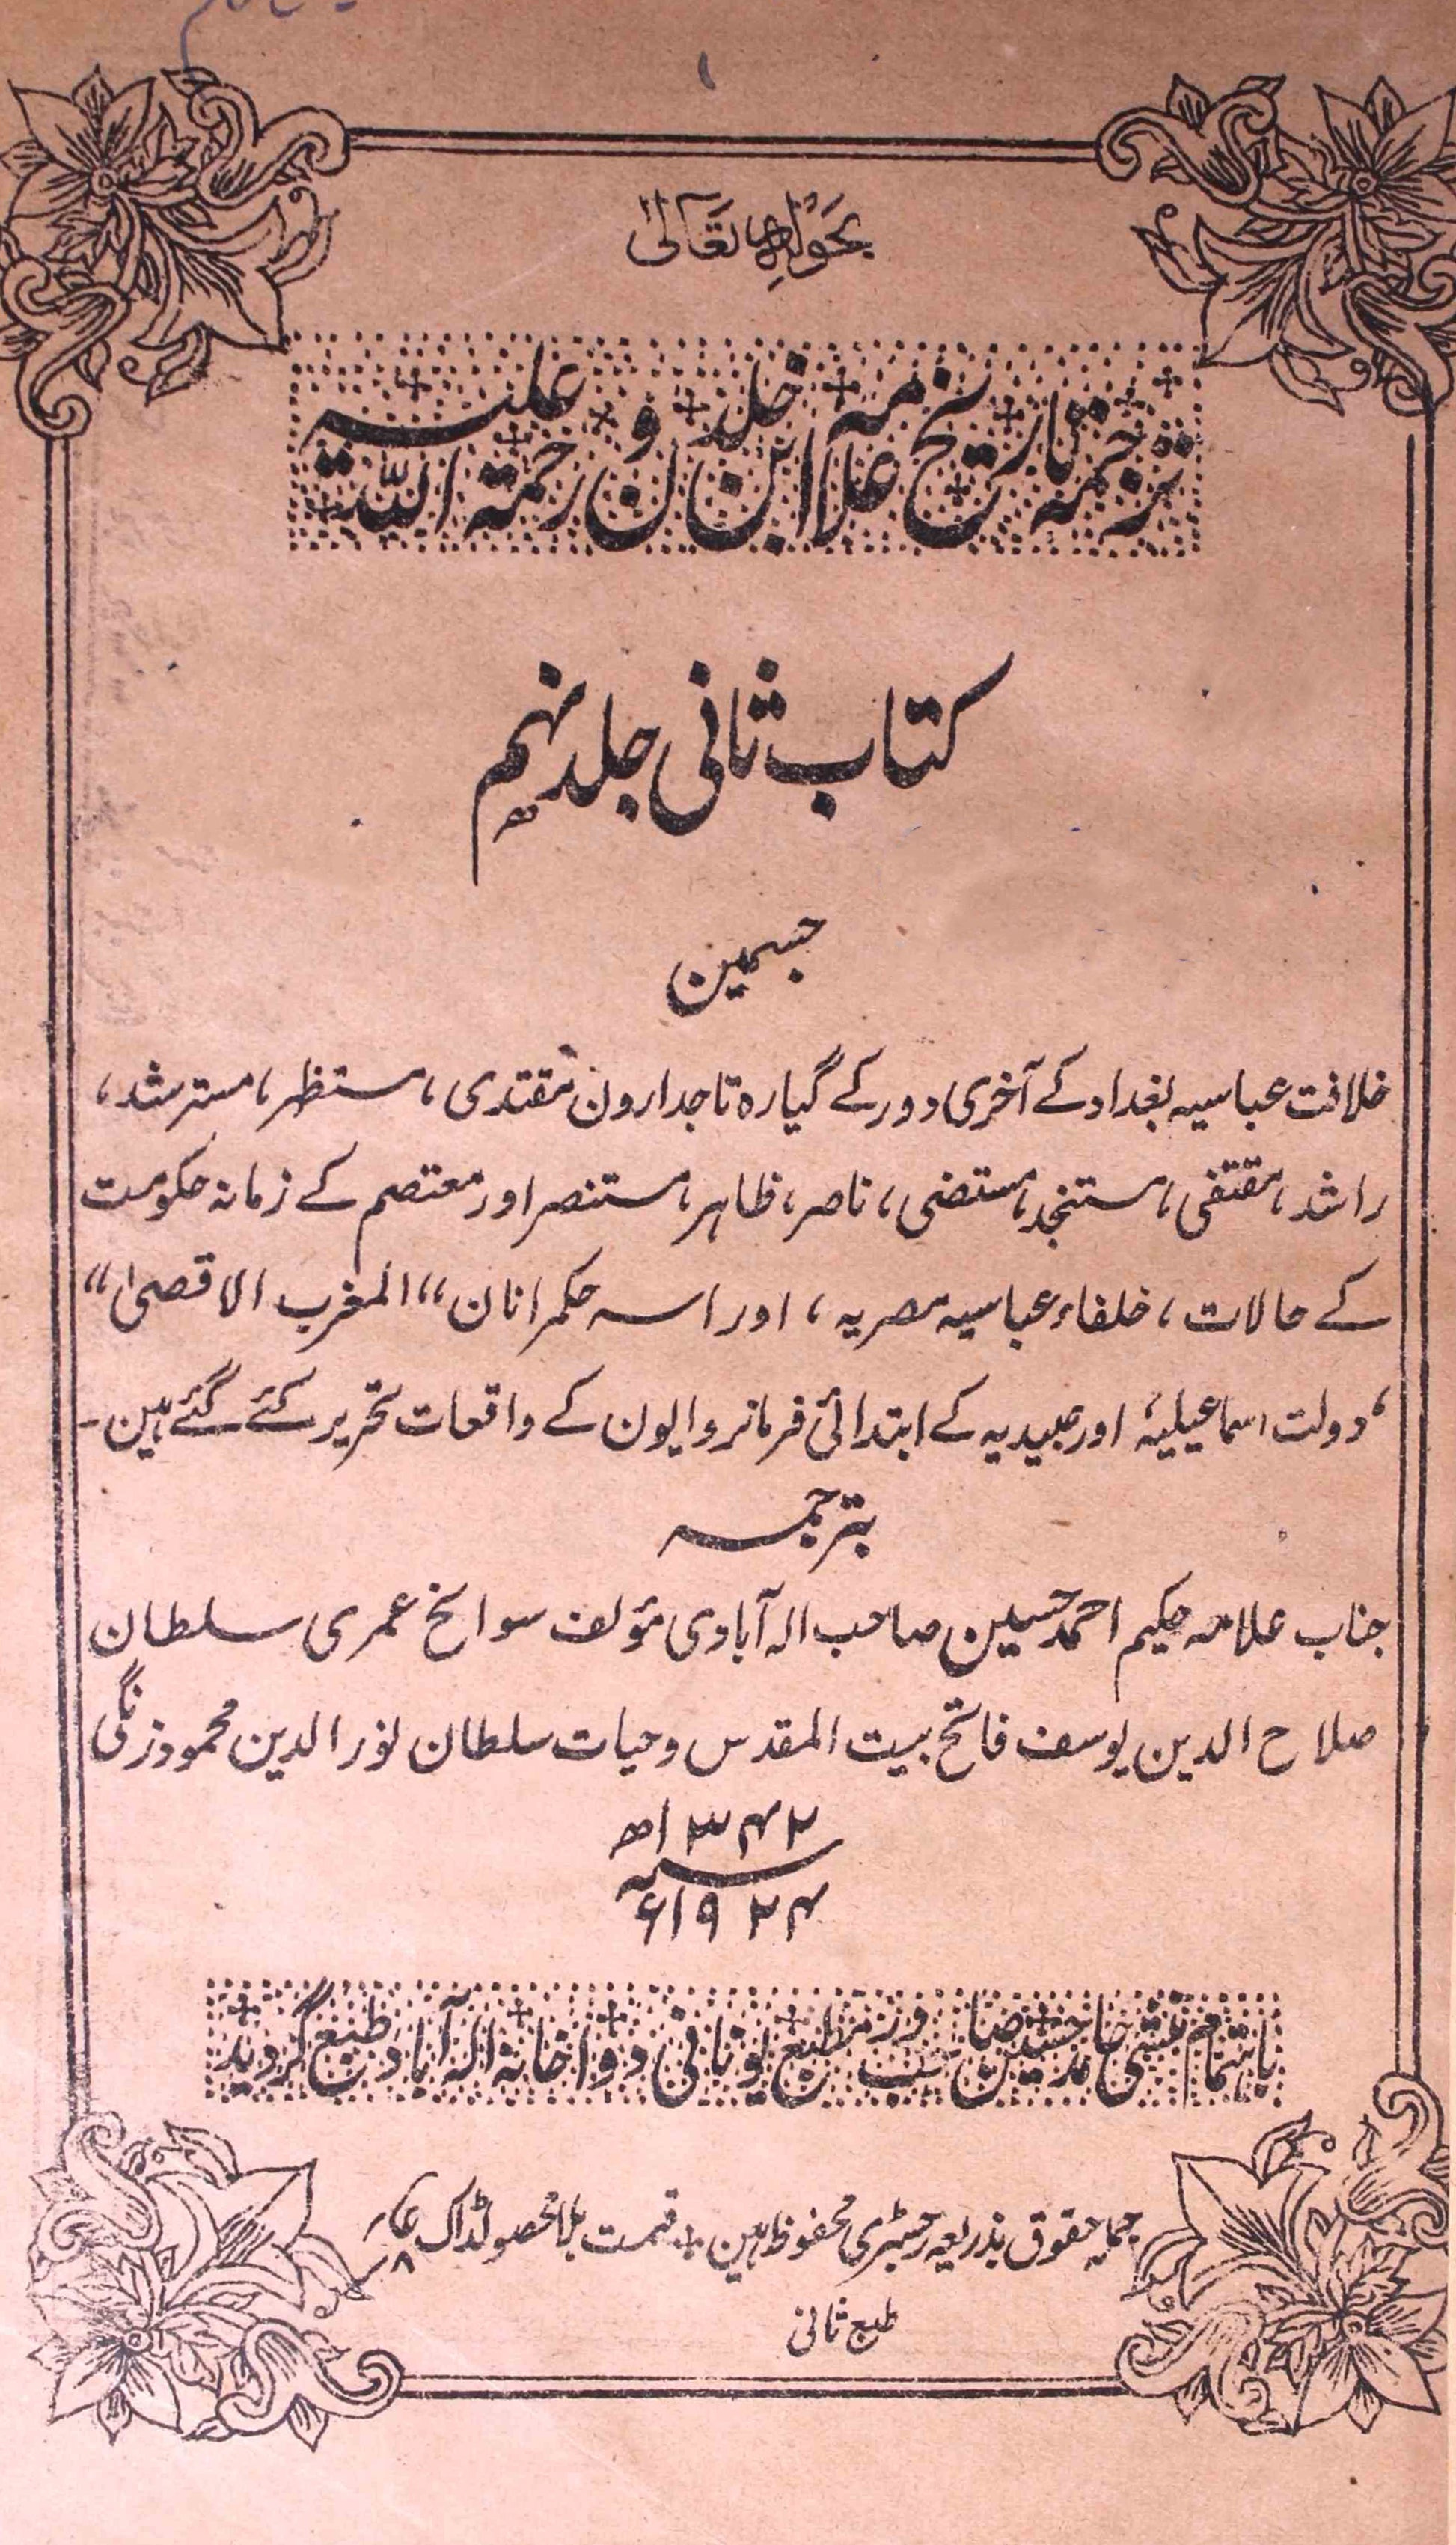 ۱
بحولہ تعالیٰ
ترجمۂ تاریخ علامہ ابن خلدون رحمتہ اللہ علیہ
کتاب ثانی جلد نہم
جسمین
خلافت عباسیہ بغداد کے آخری دور کے گیارہ تاجدارون مقتدی، مستظہر، مسترشد،
راشد، مقتفی، مستنجد، مستضی، ناصر، ظاہر، مستنصر اور معتصم کے زمانہ حکومت
کے حالات، خلفاء عباسیہ مصریہ، اور اسہ حکمرانان “المغرب الاقصیٰ”
، دولت اسماعیلیہ اور عبیدیہ کے ابتدائی فرمانروایون کے واقعات تحریر کئے گئے ہین۔
بترجمہ
جناب علامہ حکیم احمد حسین صاحب الہ آبادی مؤلف سوانح عمری سلطان
صلاح الدین یوسف فاتح بیت المقدس و حیات سلطان نور الدین محمود زنگی
۱۳۴۲ھ
سنہ
۱۹۲۴ء
باہتمام منشی حامد حسین صاحب در مطبع یونانی دواخانہ الہ آباد طبع گردید
جملہ حقوق بذریعہ رجسٹری محفوظ ہین قیمت بلا محصولڈاک
طبع ثانی